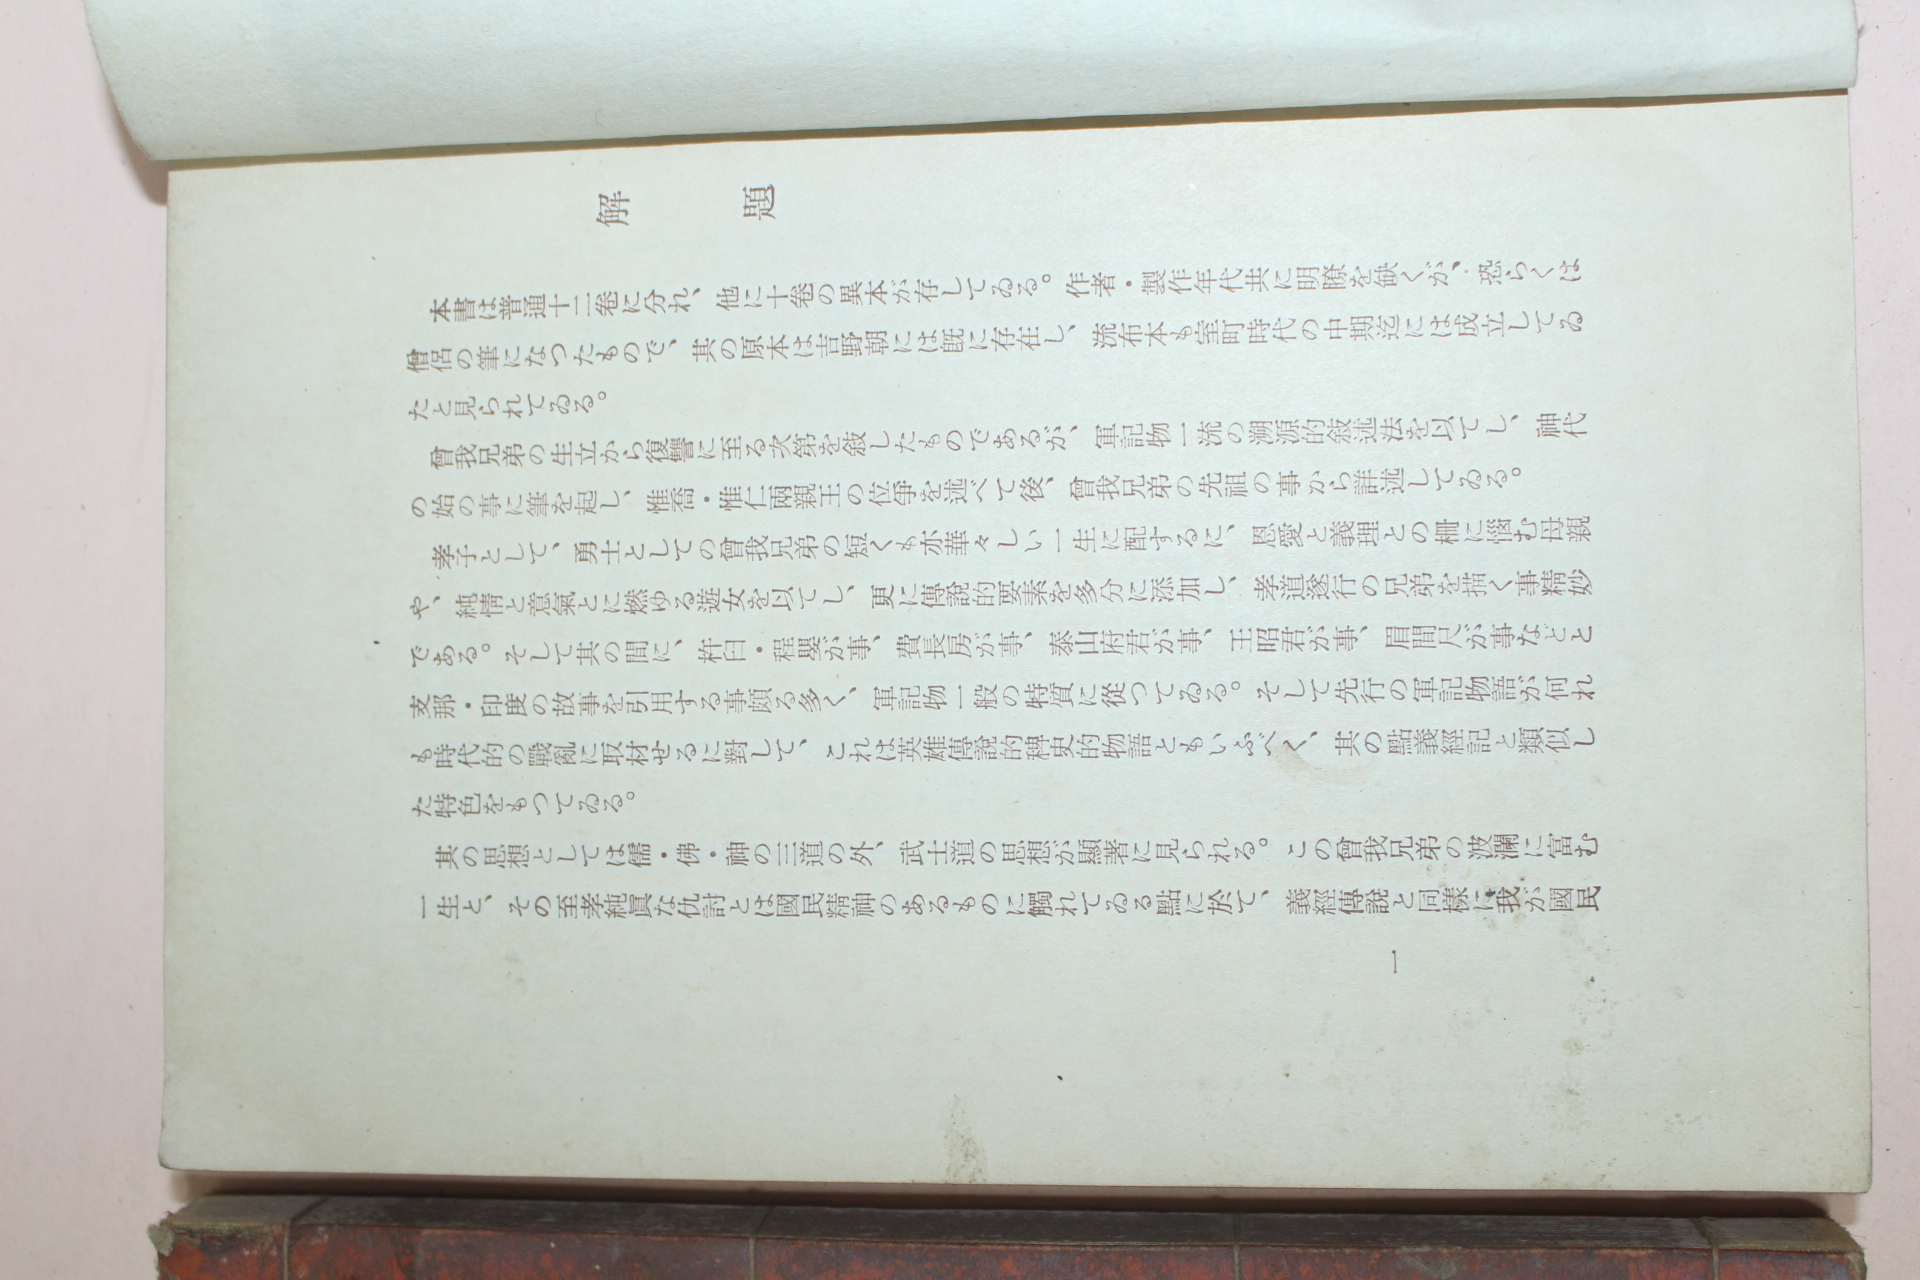 解題
本書は普通十二卷に分れ、他に十卷の異本が存してゐる。作者・製作年代共に明瞭を缺くが、恐らくは
僧侶の筆になつたもので、其の原本は吉野朝には既に存在し、流布本も室町時代の中期迄には成立してゐ
たと見られてゐる。
曾我兄弟の生立から復讐に至る次第を敍したものであるが、軍記物一流の溯源的敍述法を以てし、神代
の始の事に筆を起し、惟喬・惟仁兩親王の位爭を述べて後、曾我兄弟の先祖の事から詳述してゐる。
孝子として、勇士としての曾我兄弟の短くも亦華々しい一生に配するに、恩愛と義理との柵に惱む母親
や、純情と意氣とに燃ゆる遊女を以てし、更に傳說的要素を多分に添加し、孝道遂行の兄弟を描く事精妙
である。そして其の間に、杵臼・程嬰が事、費長房が事、泰山府君が事、王昭君が事、眉間尺が事などと
支那・印度の故事を引用する事頗る多く、軍記物一般の特質に從つてゐる。そして先行の軍記物語が何れ
も時代的の戰亂に取材せるに對して、これは英雄傳說的稗史的物語ともいふべく、其の點義經記と類似し
た特色をもつてゐる。
其の思想としては儒・佛・神の三道の外、武士道の思想が顯著に見られる。この曾我兄弟の波瀾に富む
一生と、その至孝純眞な仇討とは國民精神のあるものに觸れてゐる點に於て、義經傳說と同樣に我が國民
一